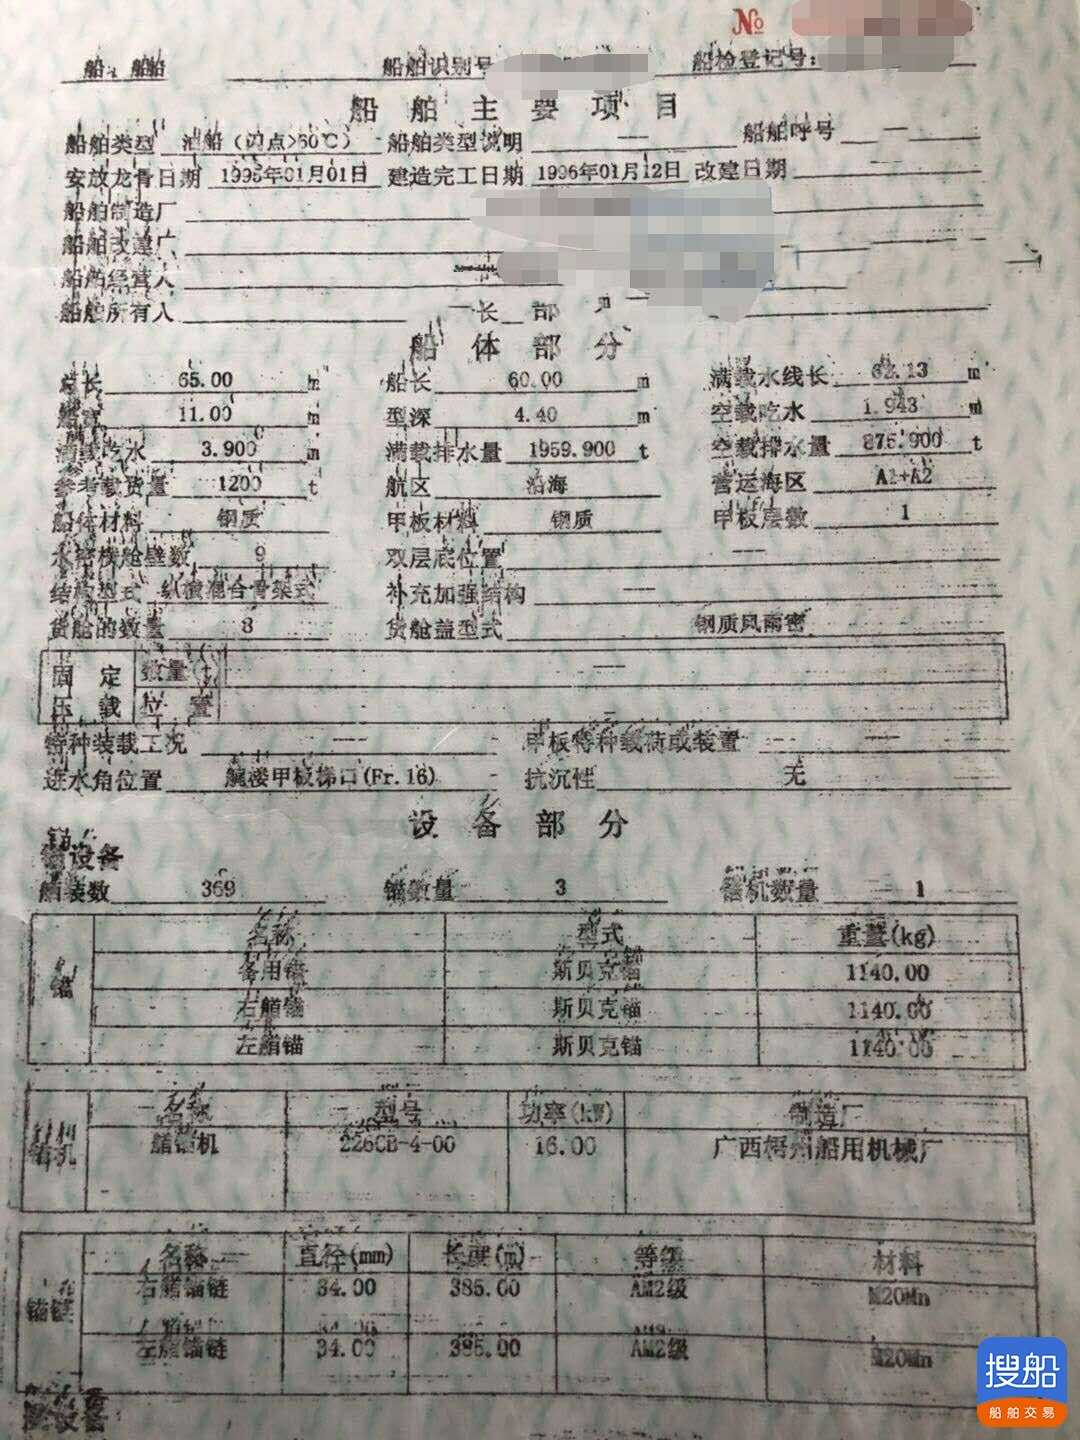 №
船舶识别号 船检登记号:
船舶主要项目
船舶类型 油船(闪点>60℃) 船舶类型说明 — 船舶呼号 —
安放龙骨日期 1995年01月01日 建造完工日期 1996年01月12日 改建日期
船舶制造厂
船舶改建厂
船舶经营人
船舶所有人
船体部分
总长 65.00 m 船长 60.00 m 满载水线长 62.13 m
船宽 11.00 m 型深 4.40 m 空载吃水 1.943 m
满载吃水 3.900 m 满载排水量 1959.900 t 空载排水量 875.900 t
参考载货量 1200 t 航区 沿海 营运海区 A1+A2
船体材料 钢质 甲板材料 钢质 甲板层数 1
水密横舱壁数 9 双层底位置 —
结构型式 纵横混合骨架式 补充加强结构 —
货舱的数量 8 货舱盖型式 钢质风雨密
固定压载 数量(t) —
位置 —
特种装载工况 — 甲板特种载荷或装置 —
进水角位置 艉楼甲板梯口(Fr.16) 抗沉性 无
设备部分
锚设备
舾装数 369 锚数量 3 锚机数量 1
锚 名称 型式 重量(kg)
备用锚 斯贝克锚 1140.00
右艏锚 斯贝克锚 1140.00
左艏锚 斯贝克锚 1140.00
锚机 名称 型号 功率(kW) 制造厂
艏锚机 226CB-4-00 16.00 广西梧州船用机械厂
锚链 名称 直径(mm) 长度(m) 等级 材料
右艏锚链 34.00 385.00 AM2级 M20Mn
左艏锚链 34.00 385.00 AM2级 M20Mn
搜船
船舶交易